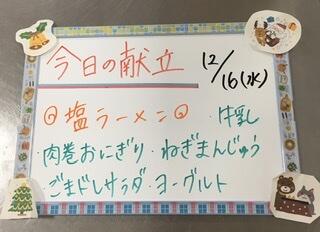 今日の献立 12/16(水)
◎塩ラーメン◎ ・牛乳
・肉巻おにぎり・ねぎまんじゅう
・ごまドレサラダ・ヨーグルト